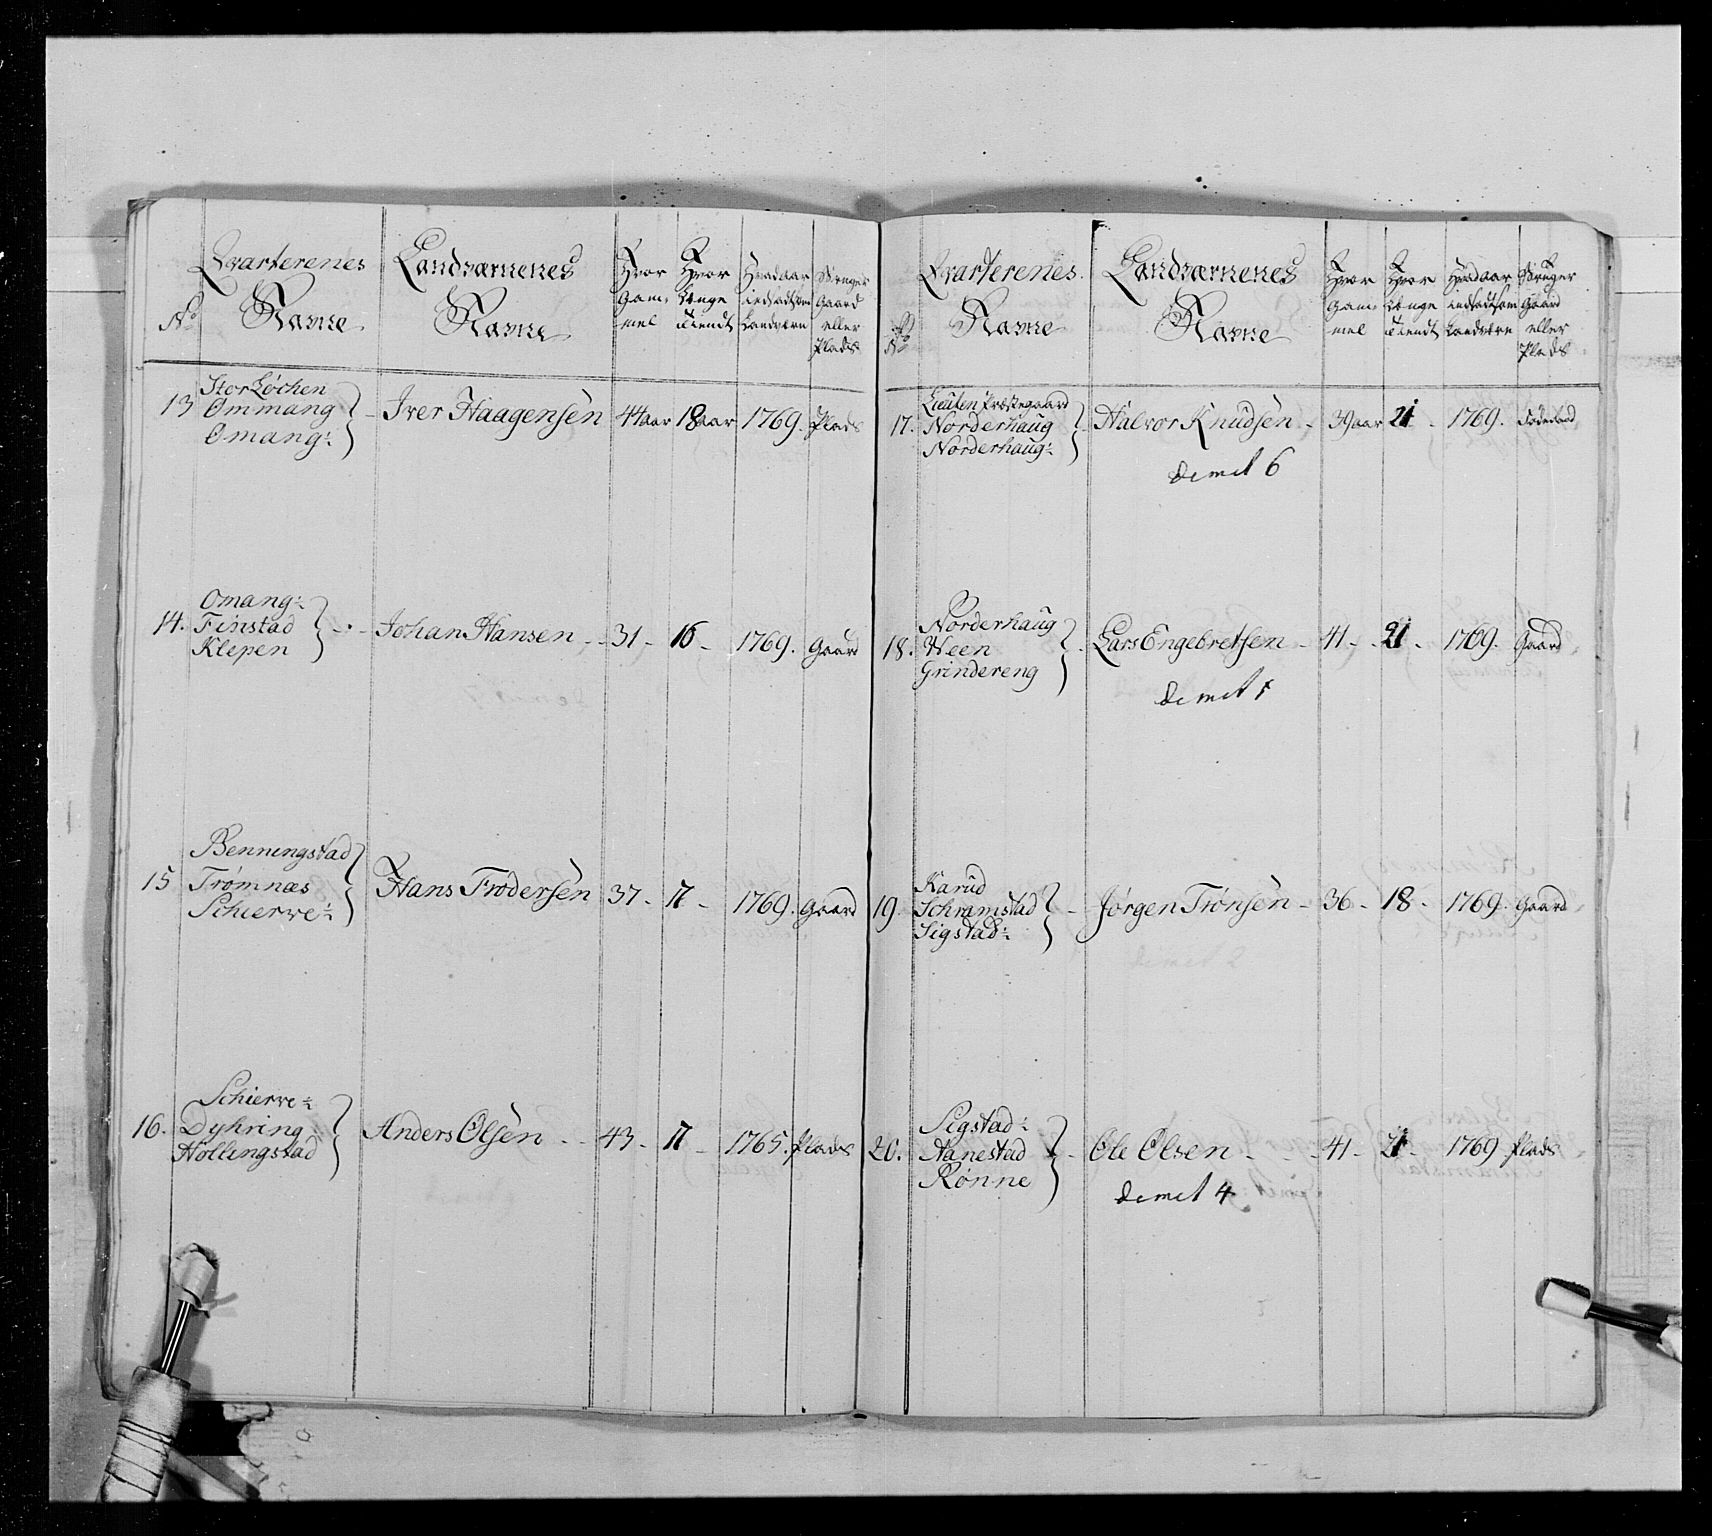 No
Qvarterenes Navne
Landværnenes Navne
Hvor Gammel
Hvor Længe tient
Hvad aar indsadt som Landværn
Bruger Gaard eller Plads
13 Stor Løchen
Ommang
Omang:
Iver Haagensen 44 aar 18 aar 1769. Plads
14. Omang:
Finstad
Klepen
Johan Hansen 31 - 16 - 1769. Gaard
15 Benningstad
Trømnæs
Schierve:
Hans Frodersen 37 - 17 - 1769. Gaard
16. Schierve:
Dyhring
Hollingstad
Anders Olsen 43 - 17 - 1765. Plads
No
Qvarterenes Navne
Landværnenes Navne
Hvor Gammel
Hvor Længe tiendt
Hvad aar indsadt som Landværn
Bruger Gaard eller Plads
17. Lieuten Præstegaard
Norderhaug
Norderhaug:
Halvor Knudsen - 39 aar 21 - 1769.
dimit 6
18. Norderhaug
Ween
Grindereng
Lars Engebretsen - 41 - 21 - 1769. Gaard
dimit
19 Karud
Schramstad
Sigstad:
Jørgen Trønsen - 36 - 18 - 1769. Gaard
20. Sigstad:
Hanestad
Rønne
Ole Olsen - 41 - 21 - 1769 Plads
dimit 4